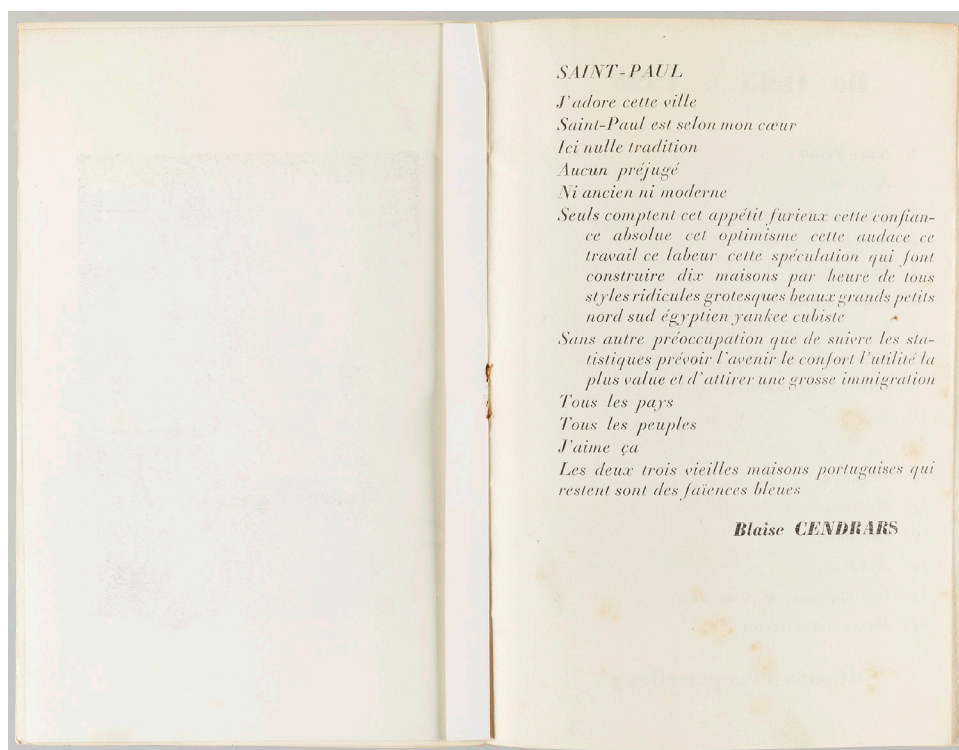 SAINT-PAUL
J'adore cette ville
Saint-Paul est selon mon cœur
Ici nulle tradition
Aucun préjugé
Ni ancien ni moderne
Seuls comptent cet appétit furieux cette confian-
ce absolue cet optimisme cette audace ce
travail ce labeur cette spéculation qui font
construire dix maisons par heure de tous
styles ridicules grotesques beaux grands petits
nord sud égyptien yankee cubiste
Sans autre préoccupation que de suivre les sta-
tistiques prévoir l'avenir le confort l'utilité la
plus value et d'attirer une grosse immigration
Tous les pays
Tous les peuples
J'aime ça
Les deux trois vieilles maisons portugaises qui
restent sont des faïences bleues
Blaise CENDRARS